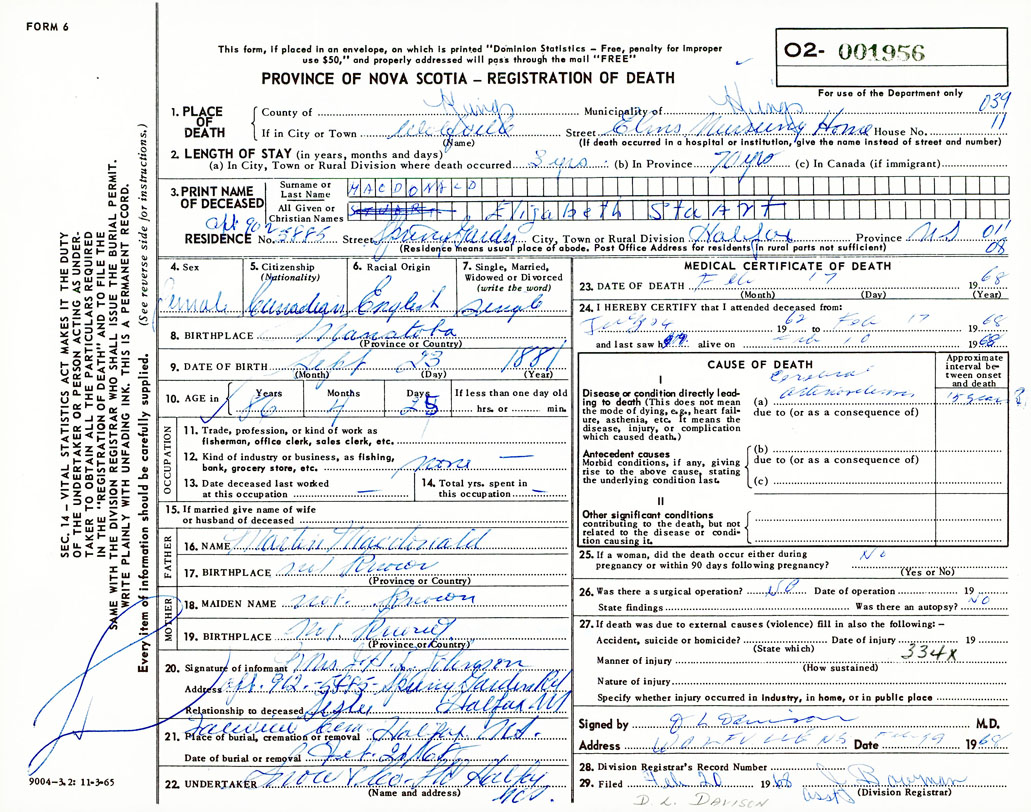 FORM 6
This form, if placed in an envelope, on which is printed "Dominion Statistics – Free, penalty for improper
use $50," and properly addressed will pass through the mail "FREE"
O2- 001956
PROVINCE OF NOVA SCOTIA – REGISTRATION OF DEATH
For use of the Department only
039
11
1. PLACE OF DEATH
County of Kings Municipality of Kings
If in City or Town Street Elms Nursing Home House No.
(Name) (If death occurred in a hospital or institution, give the name instead of street and number)
2. LENGTH OF STAY (in years, months and days)
(a) In City, Town or Rural Division where death occurred 3 yrs (b) In Province 70 yrs (c) In Canada (if immigrant)
3. PRINT NAME OF DECEASED
Surname or Last Name MACDONALD
All Given or Christian Names Elizabeth Stuart
Apt 902
RESIDENCE No. 5885 Street Spring Garden City, Town or Rural Division Halifax Province NS 011
08
(Residence means usual place of abode. Post Office Address for residents in rural parts not sufficient)
4. Sex
Female
5. Citizenship (Nationality)
Canadian
6. Racial Origin
English
7. Single, Married, Widowed or Divorced (write the word)
Single
8. BIRTHPLACE Manatoba
(Province or Country)
9. DATE OF BIRTH Sept 23 1881
(Month) (Day) (Year)
10. AGE in Years Months Days If less than one day old
86 4 25 hrs. or min.
OCCUPATION
11. Trade, profession, or kind of work as fisherman, office clerk, sales clerk, etc.
12. Kind of industry or business, as fishing, bank, grocery store, etc. none —
13. Date deceased last worked at this occupation —
14. Total yrs. spent in this occupation —
15. If married give name of wife or husband of deceased
FATHER
16. NAME Martin Macdonald
17. BIRTHPLACE not Known
(Province or Country)
MOTHER
18. MAIDEN NAME not Known
19. BIRTHPLACE not Known
(Province or Country)
20. Signature of informant Mrs
Address apt. 902 - 5885 - Spring Garden Rd
Relationship to deceased Sister Halifax NS
21. Place of burial, cremation or removal Fairview Cem Halifax N.S.
Date of burial or removal Feb. 20
22. UNDERTAKER Snow & Co. Ltd Halifax
N.S.
(Name and address)
MEDICAL CERTIFICATE OF DEATH
23. DATE OF DEATH Feb 17 1968
(Month) (Day) (Year)
24. I HEREBY CERTIFY that I attended deceased from:
1962 to Feb 17 1968
and last saw her alive on Feb 10 1968
CAUSE OF DEATH
Approximate interval between onset and death
I
Disease or condition directly leading to death (This does not mean the mode of dying, e.g., heart failure, asthenia, etc. It means the disease, injury, or complication which caused death.)
Cerebral
(a) arteriosclerosis 15 years
due to (or as a consequence of)
Antecedent causes
Morbid conditions, if any, giving rise to the above cause, stating the underlying condition last.
(b)
due to (or as a consequence of)
(c)
II
Other significant conditions contributing to the death, but not related to the disease or condition causing it.
25. If a woman, did the death occur either during pregnancy or within 90 days following pregnancy? No
(Yes or No)
26. Was there a surgical operation? NO Date of operation 19
State findings Was there an autopsy? NO
27. If death was due to external causes (violence) fill in also the following: –
Accident, suicide or homicide? Date of injury 19
(State which) 334X
Manner of injury
(How sustained)
Nature of injury
Specify whether injury occurred in industry, in home, or in public place
Signed by D L Davison M.D.
Address WOLFVILLE NS Date 1968
28. Division Registrar's Record Number
29. Filed Feb 20 1968 J. Bowman
asst (Division Registrar)
D. L. DAVISON
9004–3.2: 11-3-65
SEC. 14 – VITAL STATISTICS ACT MAKES IT THE DUTY
OF THE UNDERTAKER OR PERSON ACTING AS UNDER-
TAKER TO OBTAIN ALL THE PARTICULARS REQUIRED
IN THE "REGISTRATION OF DEATH" AND TO FILE THE
SAME WITH THE DIVISION REGISTRAR WHO SHALL ISSUE THE BURIAL PERMIT.
WRITE PLAINLY WITH UNFADING INK. THIS IS A PERMANENT RECORD.
Every item of information should be carefully supplied. (See reverse side for instructions.)